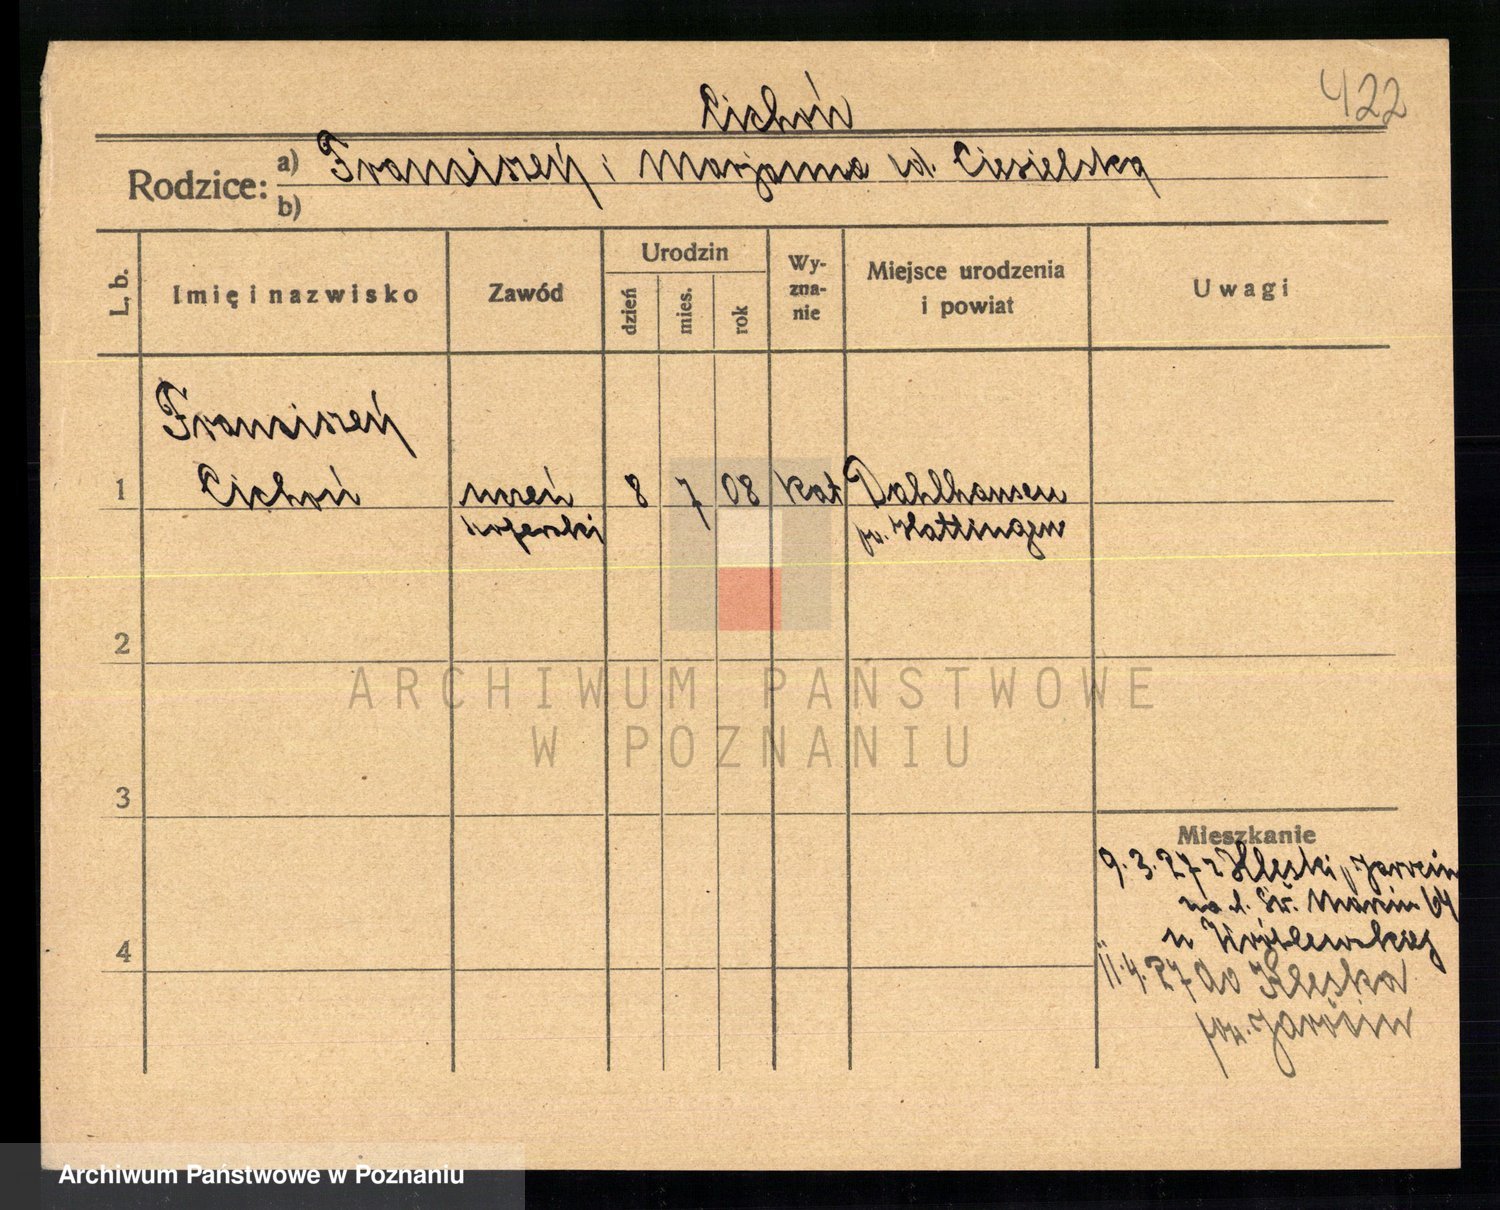 Cichoń
422
Rodzice: a) Franciszek i Marjanna ur. Ciesielska
b)
L. b.
Imię i nazwisko
Zawód
Urodzin
dzień
mies.
rok
Wy-
zna-
nie
Miejsce urodzenia
i powiat
Uwagi
Franciszek
1 Cichoń uczeń 8 7 08 kat Dahlhausen
pw. Hattingen
2
ARCHIWUM PAŃSTWOWE
W POZNANIU
3
Mieszkanie
9.3.27 z Kleski, p. Jarocin
na ul. Św. Marcin 64
4
11.4.27 do Kleska
pw. Jarocin
Archiwum Państwowe w Poznaniu